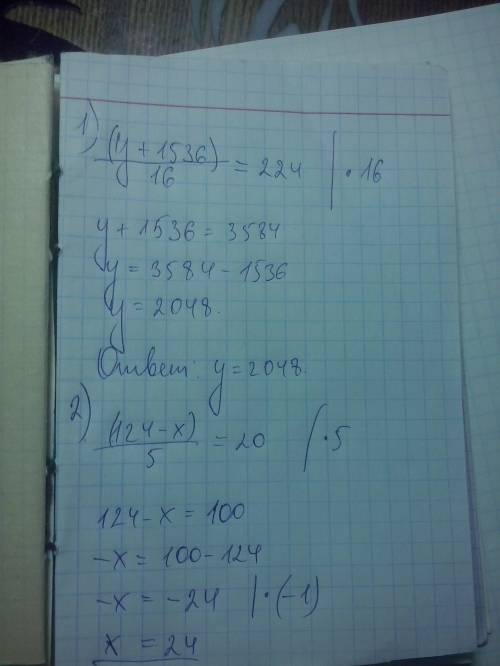 1) (y + 1536)/16 = 224 | · 16
y + 1536 = 3584
y = 3584 - 1536
y = 2048.
Ответ: y = 2048.
2) (124 - x)/5 = 20 | · 5
124 - x = 100
-x = 100 - 124
-x = -24 | · (-1)
x = 24